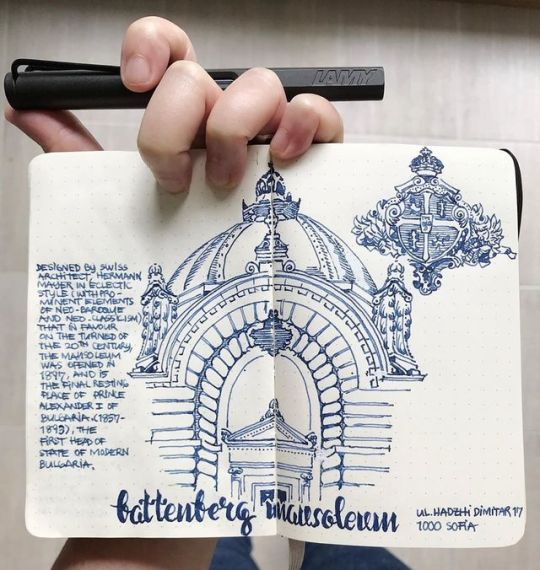 LAMY
DESIGNED BY SWISS
ARCHITECT, HERMANN
MAYER IN ECLECTIC
STYLE (WITH PRO-
MINENT ELEMENTS
OF NEO-BAROQUE
AND NEO-CLASSICISM)
THAT IN FAVOUR
ON THE TURNED OF
THE 20TH CENTURY,
THE MAUSOLEUM
WAS OPENED IN
1897, AND IS
THE FINAL RESTING
PLACE OF PRINCE
ALEXANDER I OF
BULGARIA. (1857-
1893), THE
FIRST HEAD OF
STATE OF MODERN
BULGARIA.
battenberg mausoleum
UL. HADZHI DIMITAR 17
1000 SOFIA